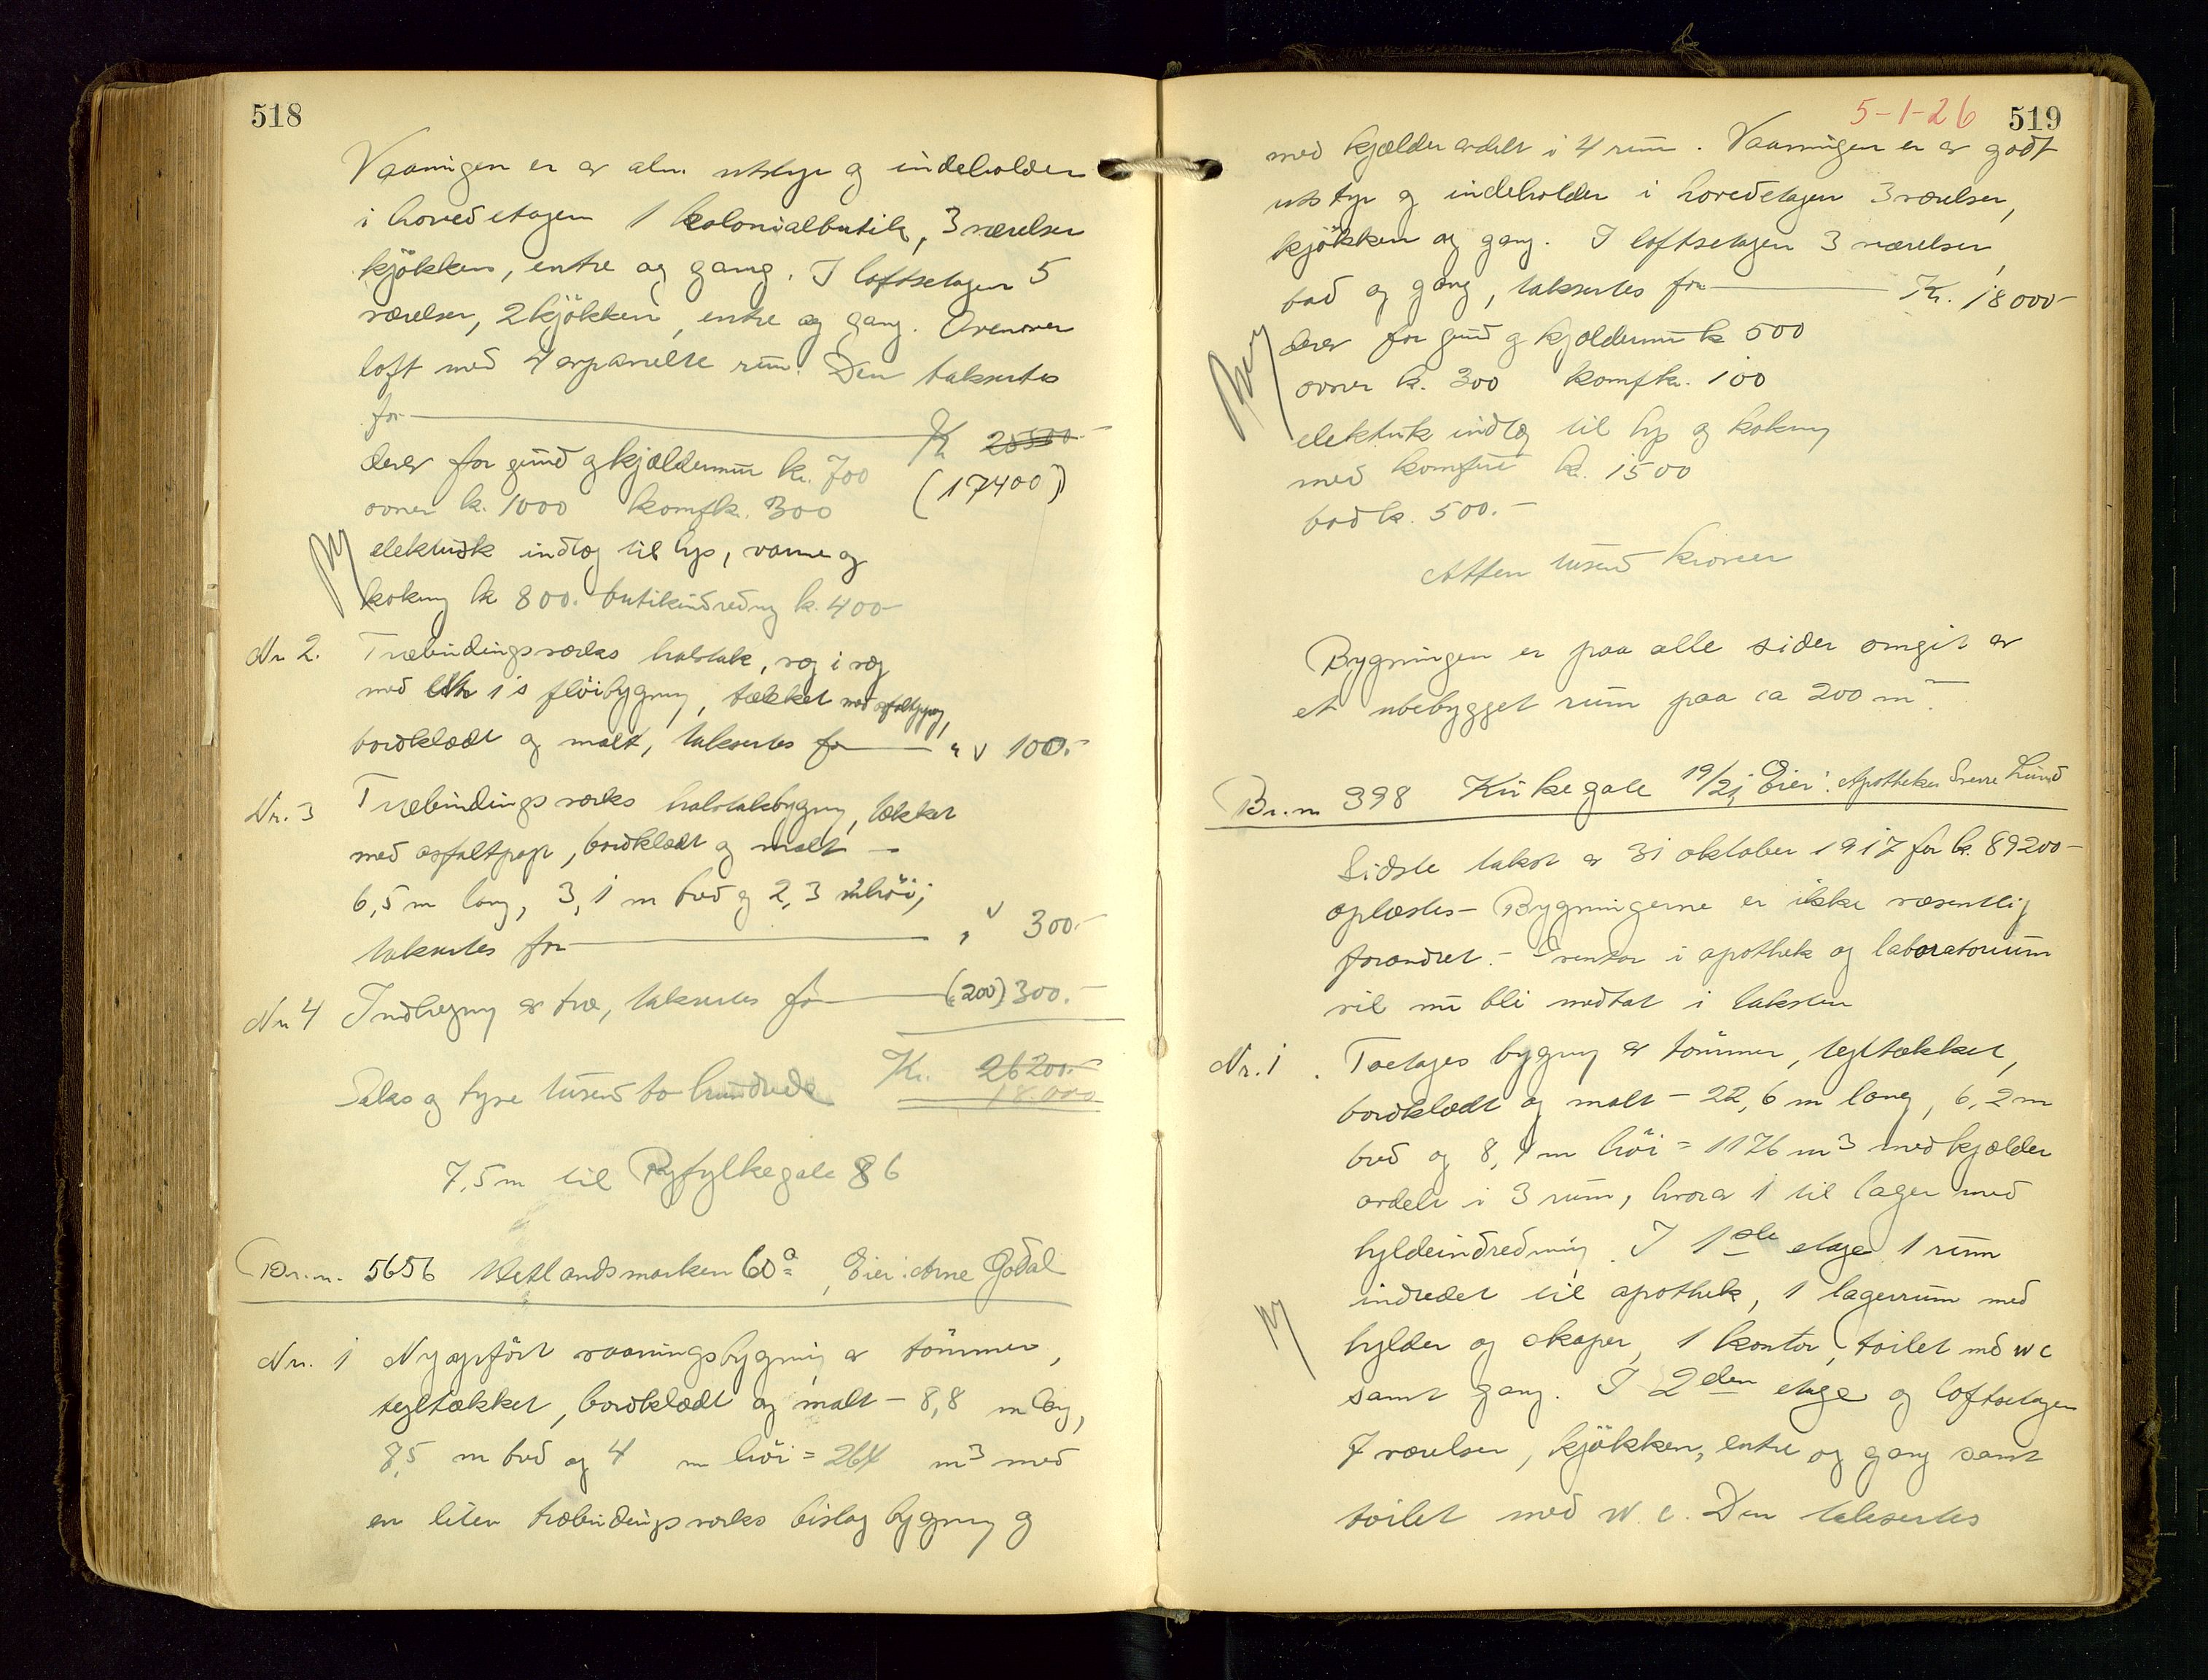 518
Vaaningen er av alm. utstyr og indeholder
i hovedetagen 1 kolonialbutik, 3 værelser
kjökken, entre og gang. I loftsetagen 5
værelser, 2 kjökken, entre og gang. Ovenover
loft med 4 avpanelte rum. Den taksertes
for Kr 25500.-
derav for grund og kjældermur kr. 700 (17400)
ovner kr. 1000 komfkr. 300
elektrisk indlæg til lys, varme og
kokning kr 800. butikindredning kr. 400-
Nr 2. Træbindingsverks halvtak, væg i væg
med 1's flöibygning, tækket med asfaltpap,
bordklædt og malt, taksertes for " 100.-
Nr. 3 Træbindingsverks halvtaksbygning, tækket
med asfaltpap, bordklædt og malt -
6,5 m lang, 3,1 m bred og 2,3 m höi;
taksertes for " 300.-
Nr 4 Indhegning av træ, taksertes for (200) 300.-
Kr. 26200.-
18.000
Seks og tyve tusend to hundrede
7,5 m til Ryfylkegate 86
Br.nr. 5656 Hetlandsmarken 60a, Eier: Arne Godal
Nr. 1 Nyopfört vaaningsbygning av tömmer,
tegltækket, bordklædt og malt - 8,8 m lang,
8,5 m bred og 4 m höi = 264 m3 med
en liten træbindingsverks bislagbygning og
5-1-26 519
med kjælder avdelt i 4 rum. Vaaningen er av godt
utstyr og indeholder i hovedetagen 3 værelser,
kjökken og gang. I loftsetagen 3 værelser,
bad og gang, taksertes for Kr. 18000-
derav for grund og kjældermur kr 500
ovner kr. 300 komfkr. 100
elektrisk indlæg til lys og kokning
med komfur kr. 1500
bad kr. 500.-
Atten tusend kroner
Bygningen er paa alle sider omgit av
et ubebygget rum paa ca 200 m2.
Br.nr 398 Kirkegate 19/21 Eier: Apotheker Sverre Lund
Sidste takst av 31 oktober 1917 for kr. 89200-
oplæstes - Bygningerne er ikke væsentlig
forandret. - Inventar i apothek og laboratorium
vil nu bli medtat i taksten
Nr. 1. Toetages bygning av tömmer, tegltækket,
bordklædt og malt - 22,6 m lang, 6,2 m
bred og 8,4 m höi = 1176 m3 med kjælder
avdelt i 3 rum, hvorav 1 til lager med
hyldeindredning. I 1ste etage 1 rum
indredet til apothek, 1 lagerrum med
hylder og skaper, 1 kontor, toilet med wc
samt gang. I 2den etage og loftsetagen
7 værelser, kjökken, entre og gang samt
toilet med w.c. Den taksertes